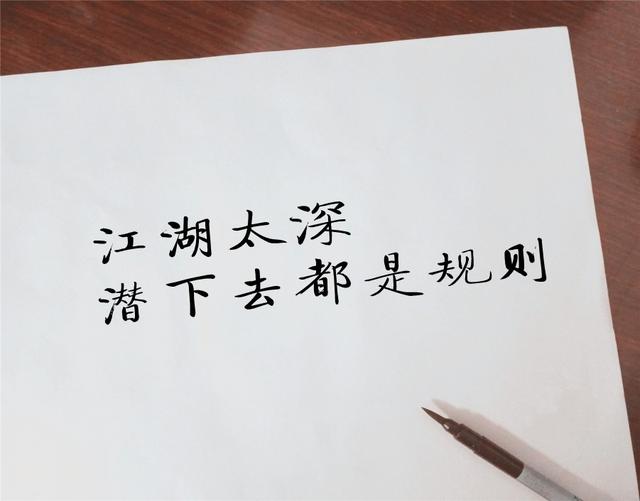 江湖太深
潜下去都是规则